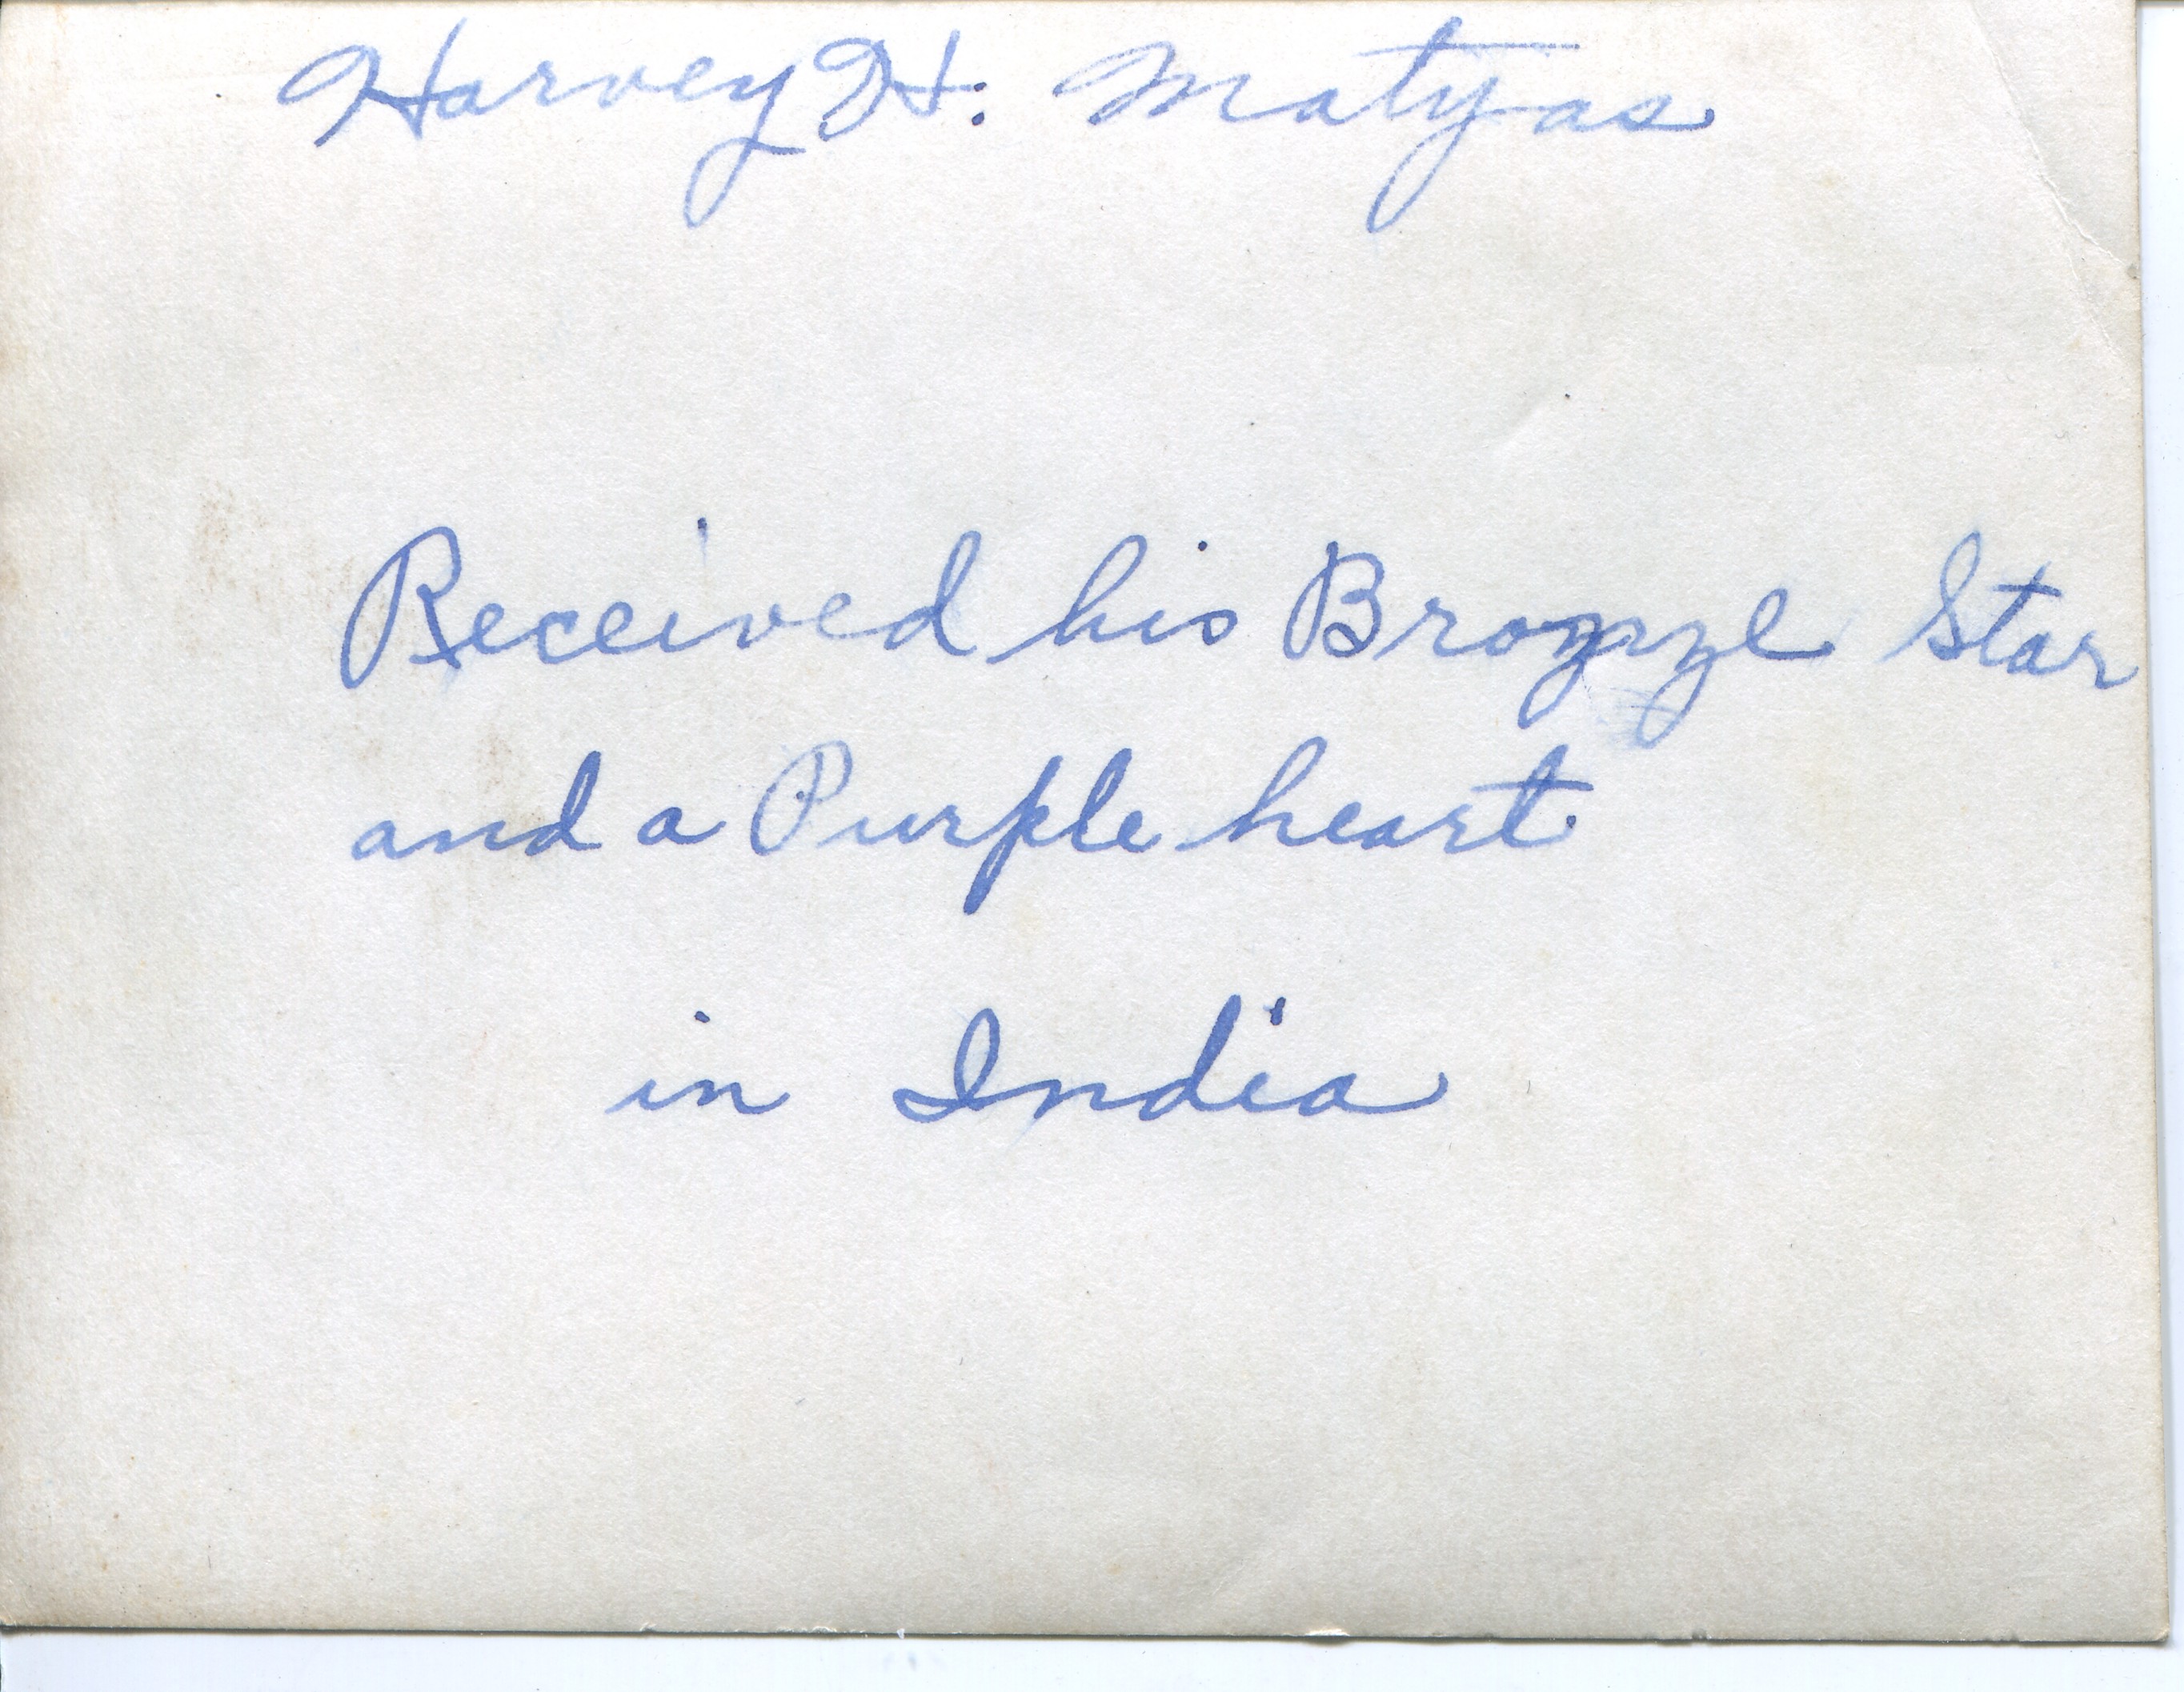 Harvey H. Matyas
Received his Bronze Star
and a Purple heart
in India